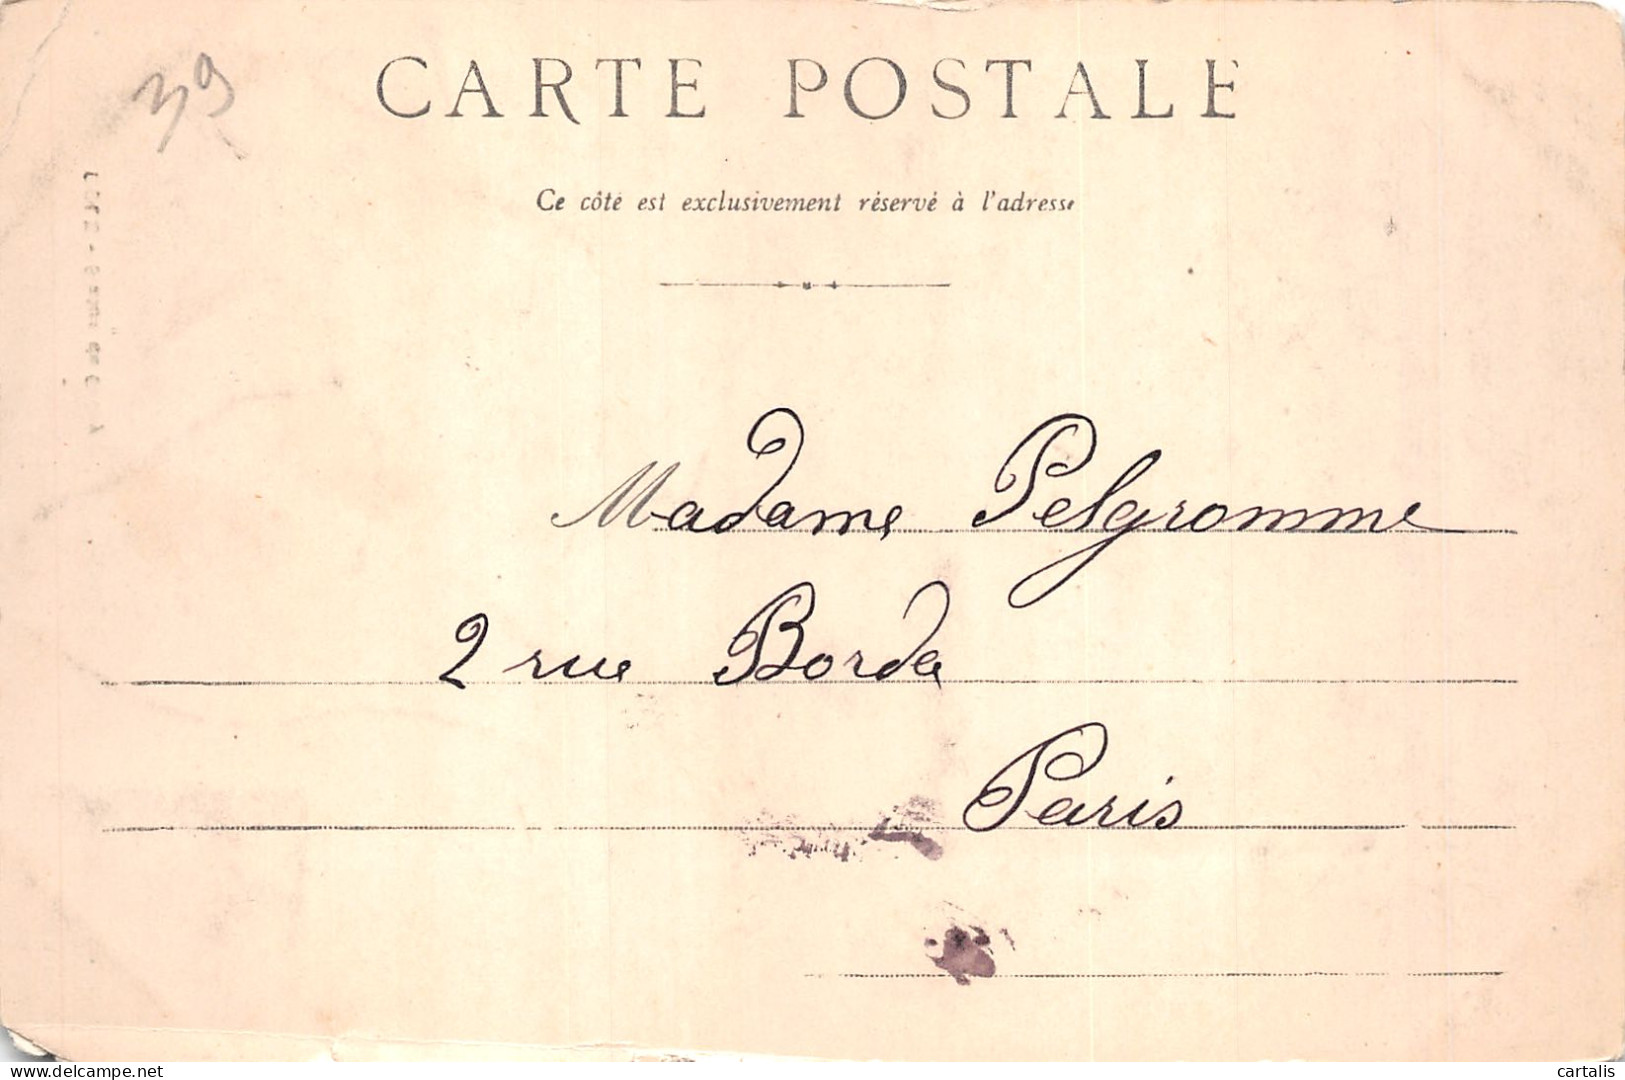 39
CARTE POSTALE
Ce côté est exclusivement réservé à l'adresse
Madame Pelgromme
2 rue Borda
Paris
delcampe.net
cartalis